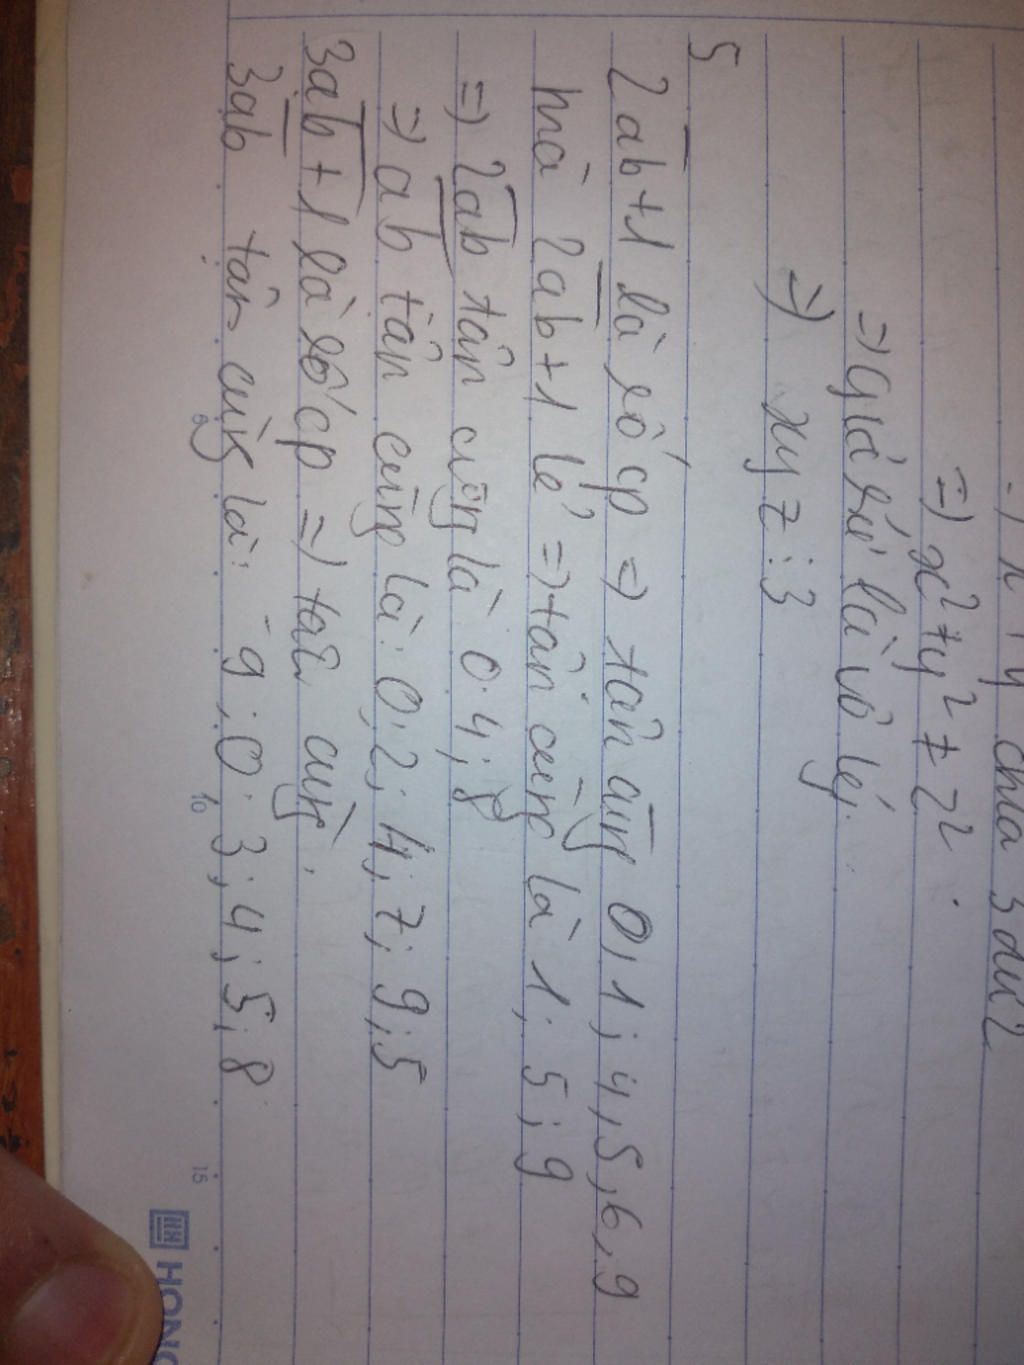 chia 3 dư 2
=) x² + y² ≠ z².
=) Giả sử là vô lý.
=) xyz ⋮ 3
5
2ab+1 là số cp => tận cùng 0, 1; 4, 5, 6, 9
mà 2ab+1 lẻ => tận cùng là 1; 5; 9
=) 2ab tận cùng là 0. 4; 8
=) ab tận cùng là: 0; 2; 4; 7; 9; 5
3ab+1 là số cp =) tận cùng.
3ab tận cùng là: 9; 0; 3; 4; 5; 8
5
10
15
HONG